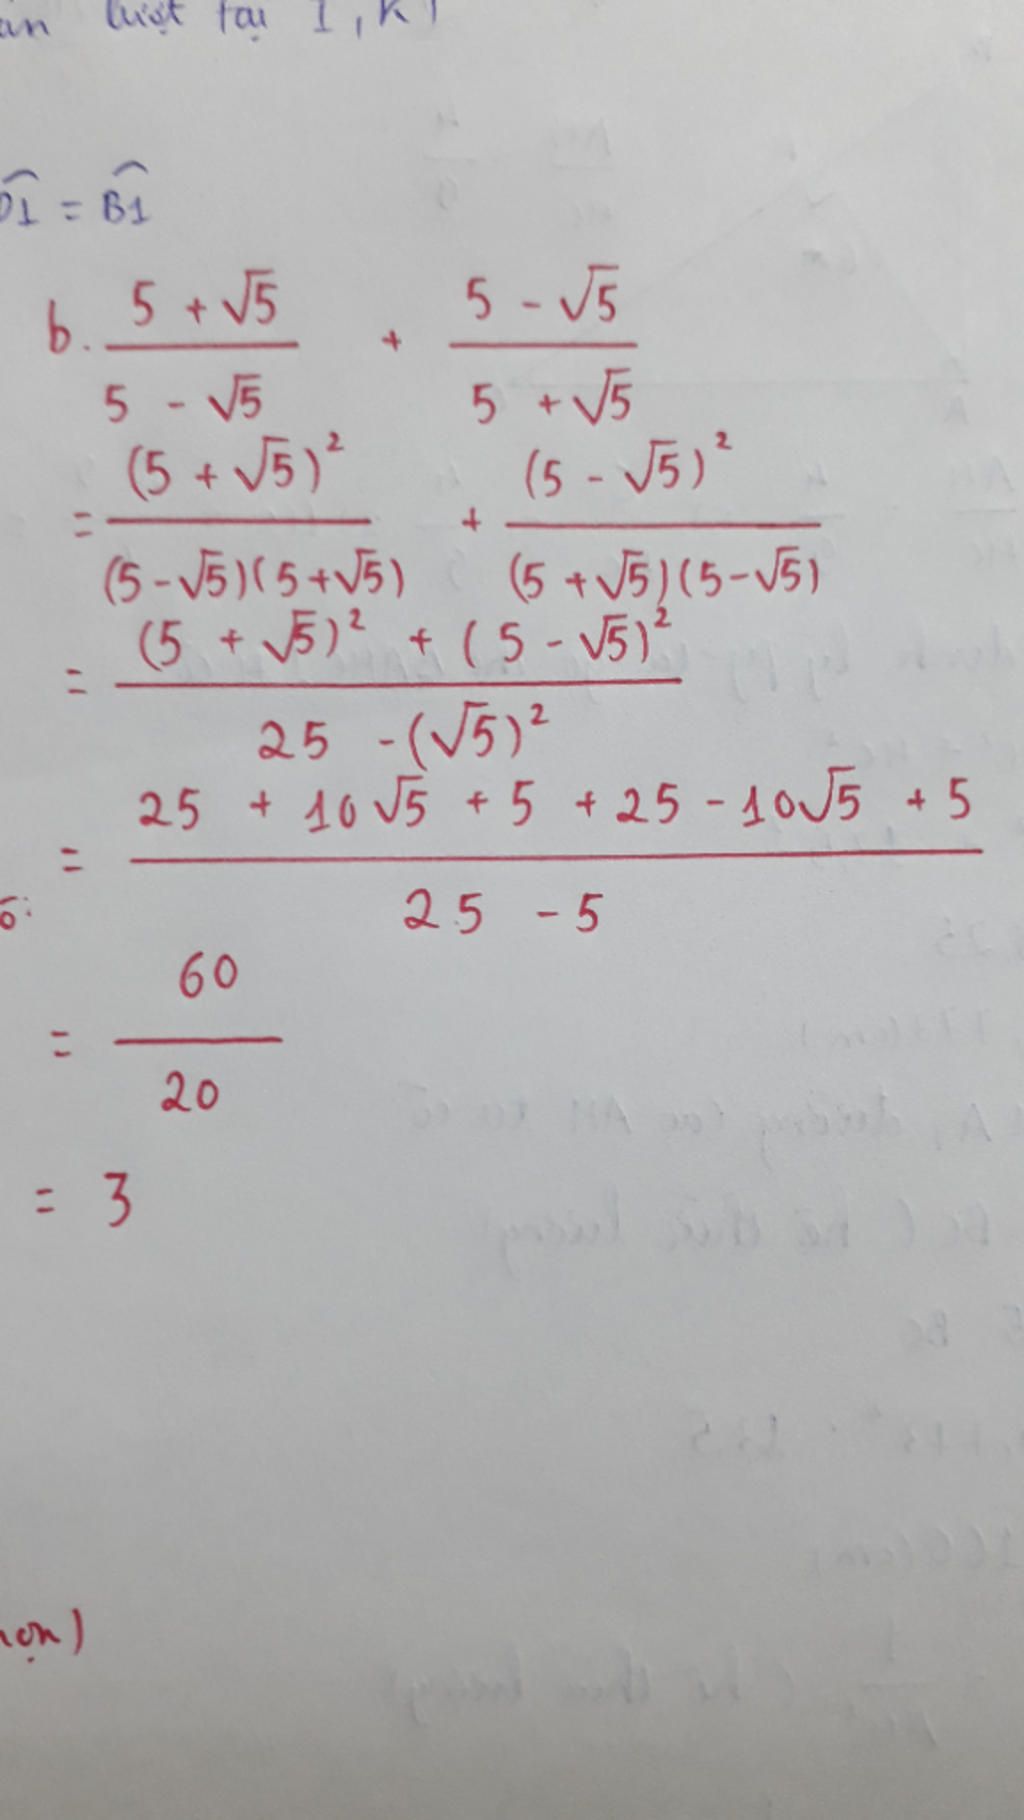 lượt tại I, K)
D1 = B1
b. (5 + √5)/(5 - √5) + (5 - √5)/(5 + √5)
= (5 + √5)²/((5 - √5)(5 + √5)) + (5 - √5)²/((5 + √5)(5 - √5))
= ((5 + √5)² + (5 - √5)²)/(25 - (√5)²)
= (25 + 10√5 + 5 + 25 - 10√5 + 5)/(25 - 5)
= 60/20
= 3